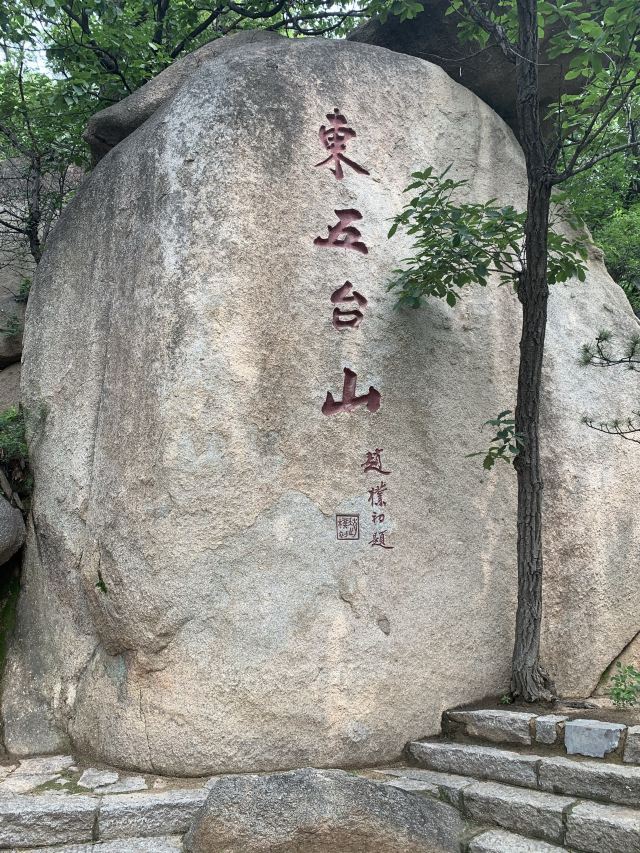 東五台山
趙樸初題